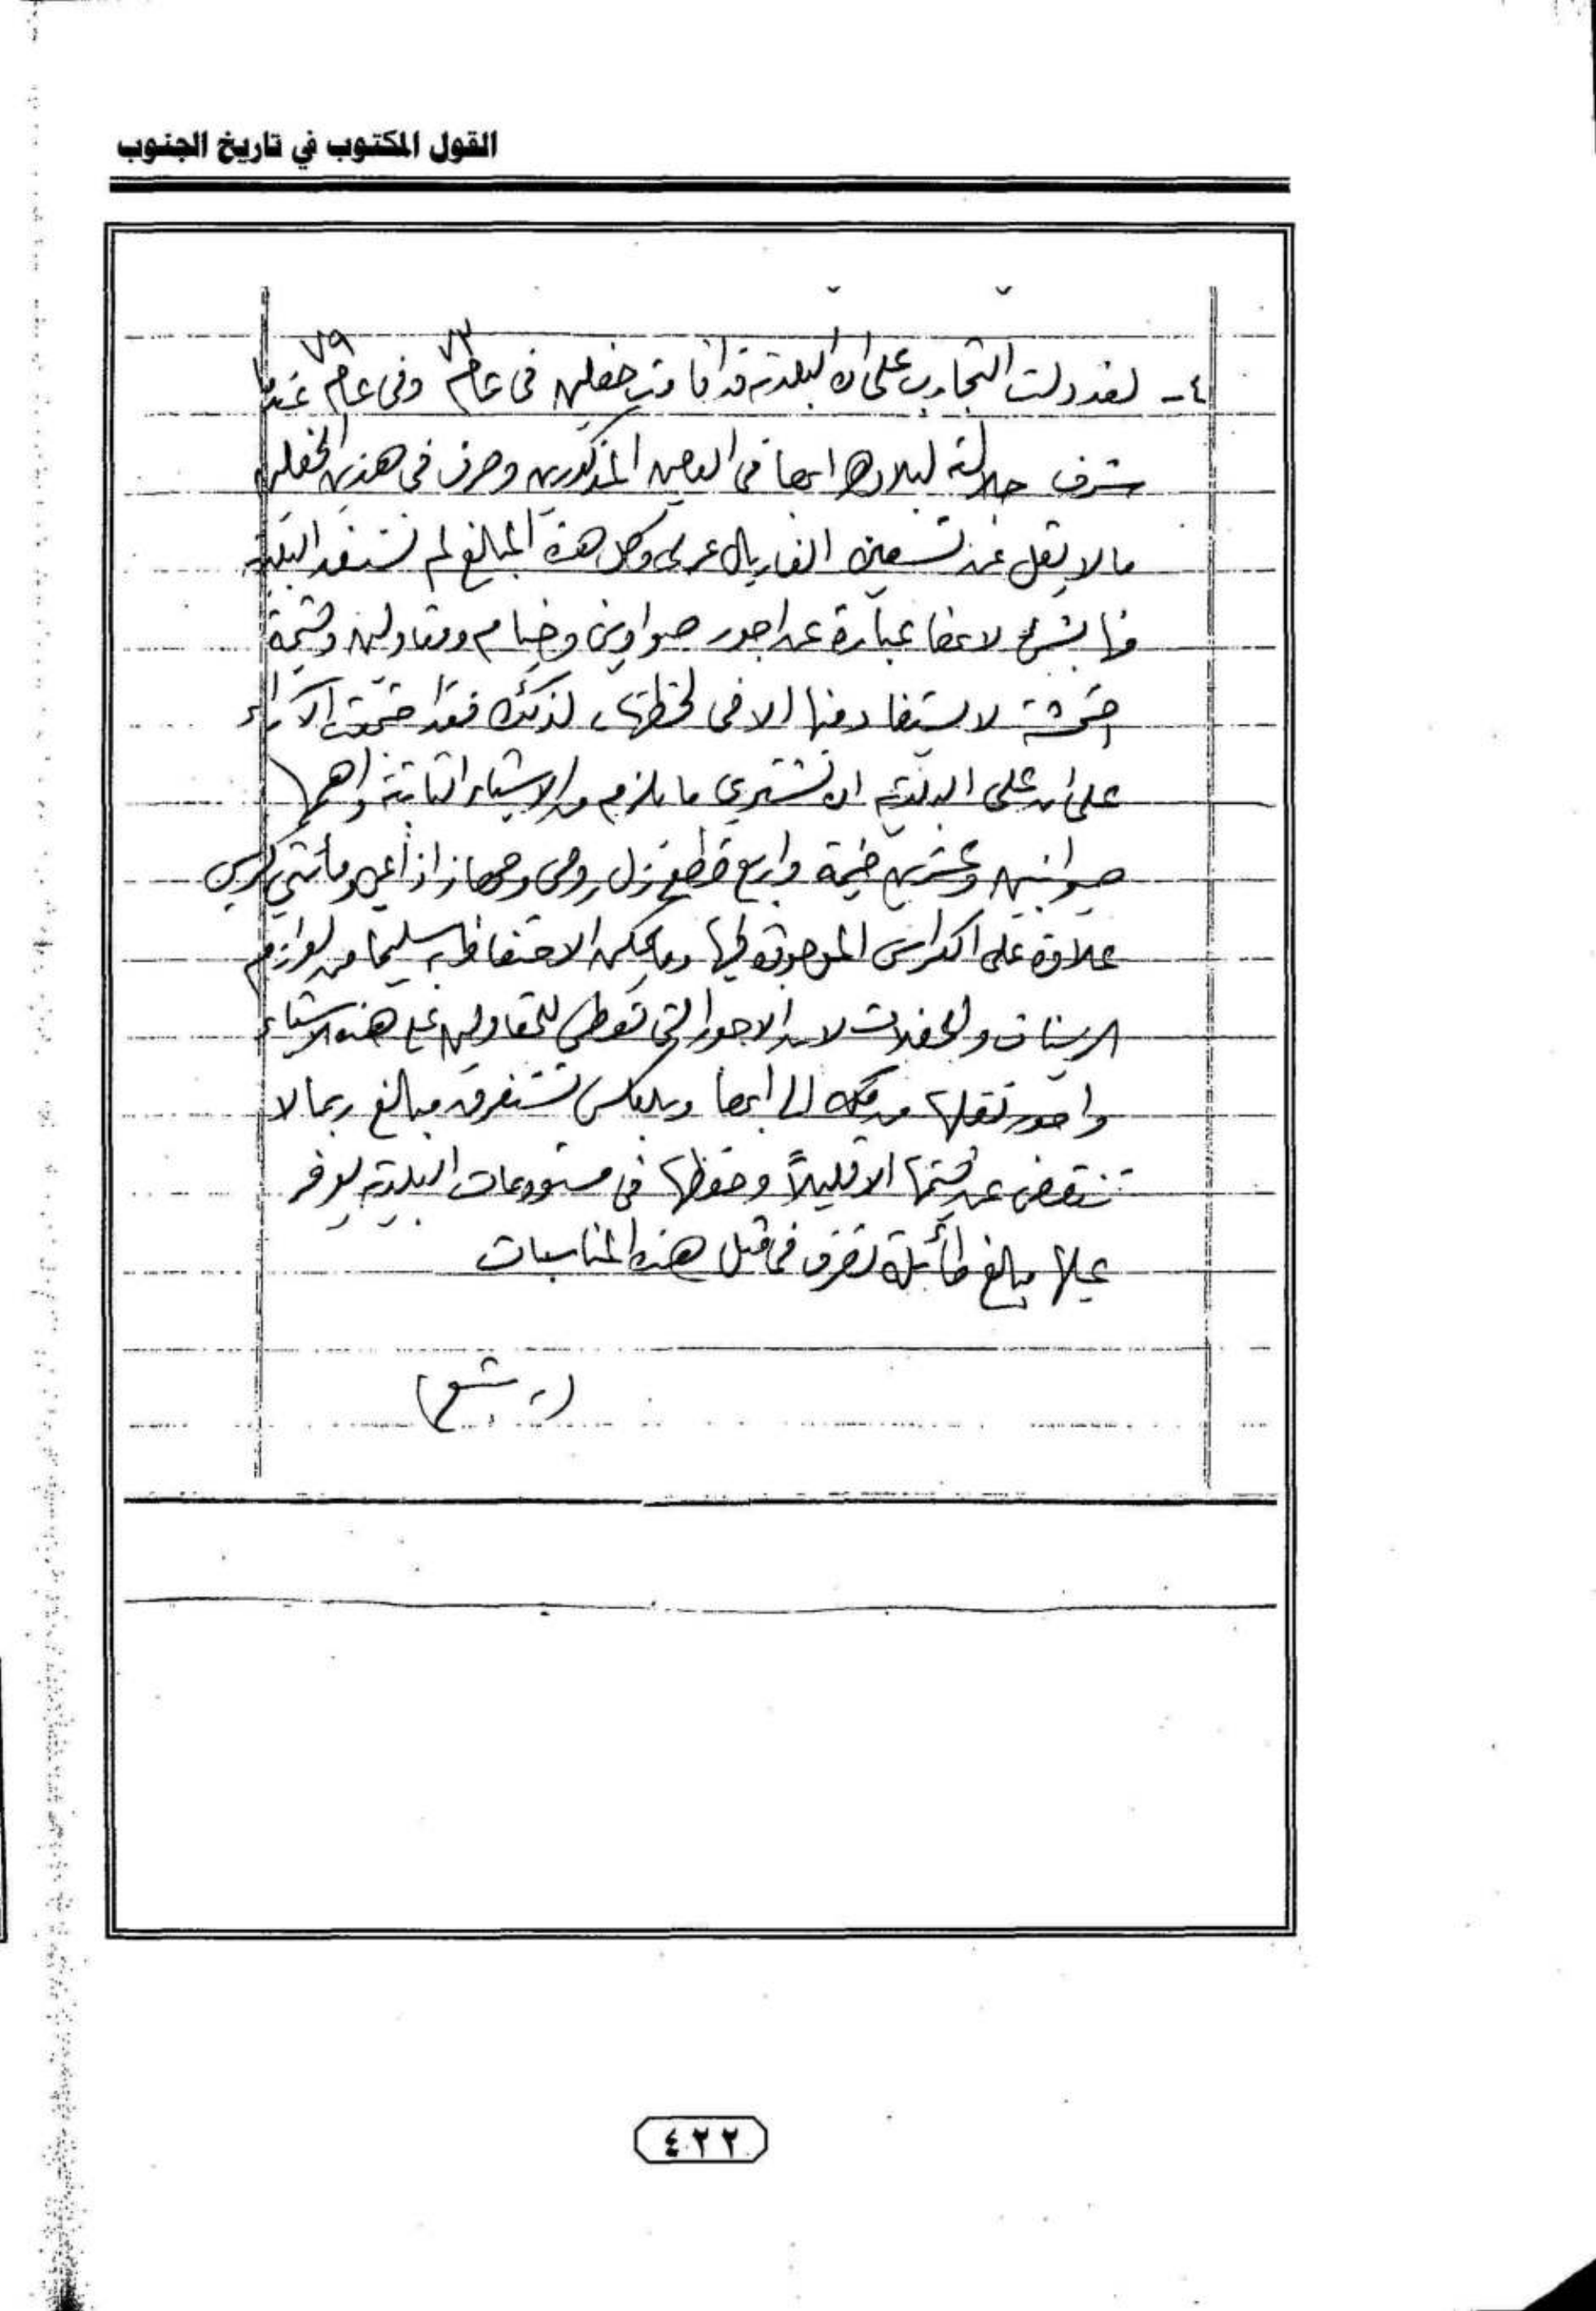 القول المكتوب في تاريخ الجنوب
٤- لقد دلت التجارب على ان البلدية قد اقامت حفلين في عام ٧٣ وفي عام ٧٩ عندما
شرف جلالته لبلاده ابها في العامين المذكورين وصرف في هذين الحفلين
مالا يقل عن تسعين الف ريال عربي وكل هذه المبالغ لم تستفد البلدية
منها بشيء لانها عبارة عن اجور صواوين وخيام ومقاولين وقيمة
لا يستفاد منها الا في لحظتها، لذلك فقد اجتمعت الآراء
على ان على البلدية ان تشتري ما يلزم من الاشياء الثابتة واهمها
صيوانين وعشرين خيمة واربع قطع زل رومي وجهاز اذاعي ومائتي كرسي
علاوة على الكراسي الموجودة لديها وما يمكن الاحتفاظ به سليما من لوازم
الزينات والحفلات لان الاجور التي تعطى للمقاولين على هذه الاشياء
واجور نقلها من مكة الى ابها وبالعكس تستغرق مبالغ ربما لا
تنقص عن قيمتها الا قليلاً وحفظها في مستودعات البلدية يوفر
عليها مبالغ طائلة تصرف في مثل هذه المناسبات
(يتبع)
٤٢٢